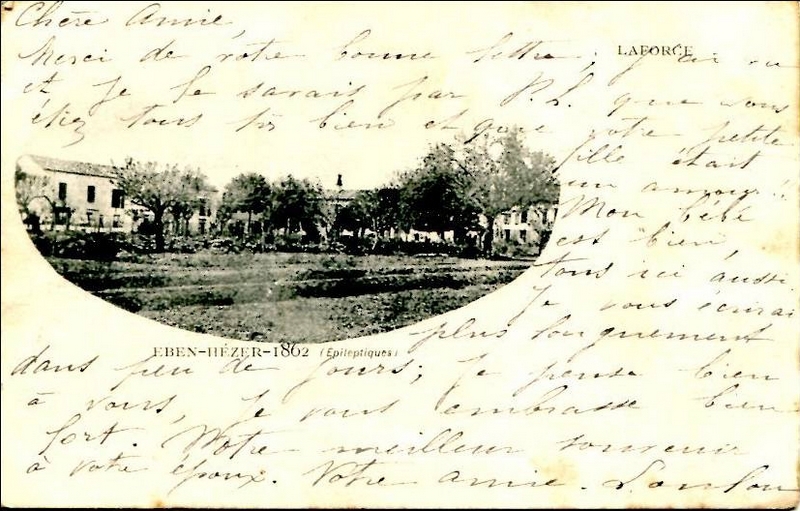 Chère Amie,
Merci de votre bonne lettre; j'ai vu
LAFORCE
et je le savais par P.L. que vous
étiez tous très bien et que votre petite
fille était
un amour!!
Mon bébé
est bien,
tous ici aussi.
Je vous écrirai
plus longuement
EBEN-HÉZER-1862 (Epileptiques)
dans peu de jours; je pense bien
à vous, je vous embrasse bien
fort. Notre meilleur souvenir
à votre époux. Votre amie. Loulou